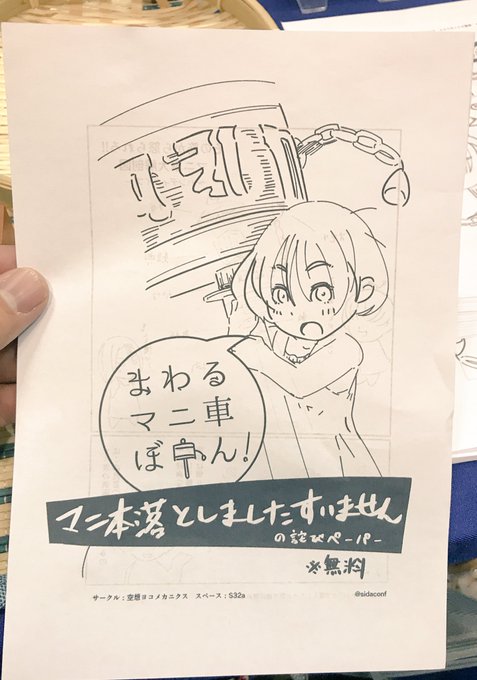 まわる
マニ車
ぼん!
マニ本落としましたすいません
の詫びペーパー
※無料
サークル:空想ヨコメカニクス スペース:S32a
@sidaconf